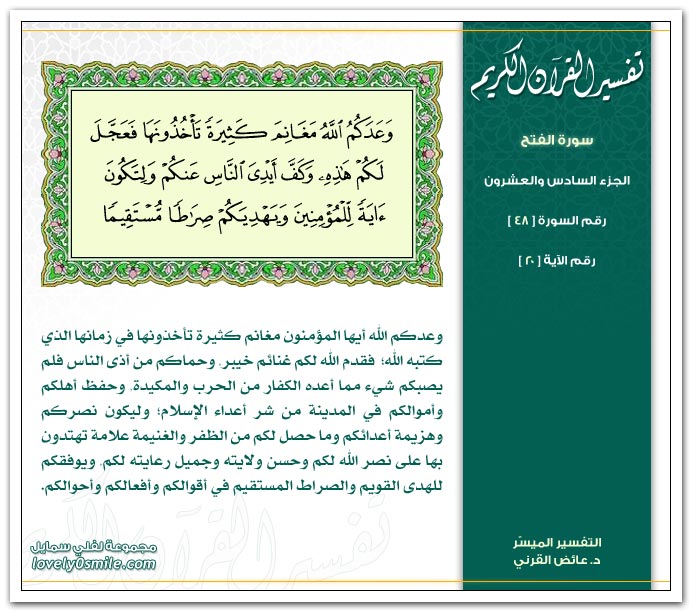 تفسير القرآن الكريم
سورة الفتح
الجزء السادس والعشرون
رقم السورة [ ٤٨ ]
رقم الآية [ ٢٠ ]
وَعَدَكُمُ ٱللَّهُ مَغَانِمَ كَثِيرَةً تَأْخُذُونَهَا فَعَجَّلَ
لَكُمْ هَٰذِهِۦ وَكَفَّ أَيْدِىَ ٱلنَّاسِ عَنكُمْ وَلِتَكُونَ
ءَايَةً لِّلْمُؤْمِنِينَ وَيَهْدِيَكُمْ صِرَٰطًا مُّسْتَقِيمًا
وعدكم الله أيها المؤمنون مغانم كثيرة تأخذونها في زمانها الذي
كتبه الله؛ فقدم الله لكم غنائم خيبر، وحماكم من أذى الناس فلم
يصبكم شيء مما أعده الكفار من الحرب والمكيدة، وحفظ أهلكم
وأموالكم في المدينة من شر أعداء الإسلام؛ وليكون نصركم
وهزيمة أعدائكم وما حصل لكم من الظفر والغنيمة علامة تهتدون
بها على نصر الله لكم وحسن ولايته وجميل رعايته لكم، ويوفقكم
للهدى القويم والصراط المستقيم في أقوالكم وأفعالكم وأحوالكم.
التفسير الميسّر
د. عائض القرني
مجموعة لفلي سمايل
lovely0smile.com
تفسير القرآن الكريم